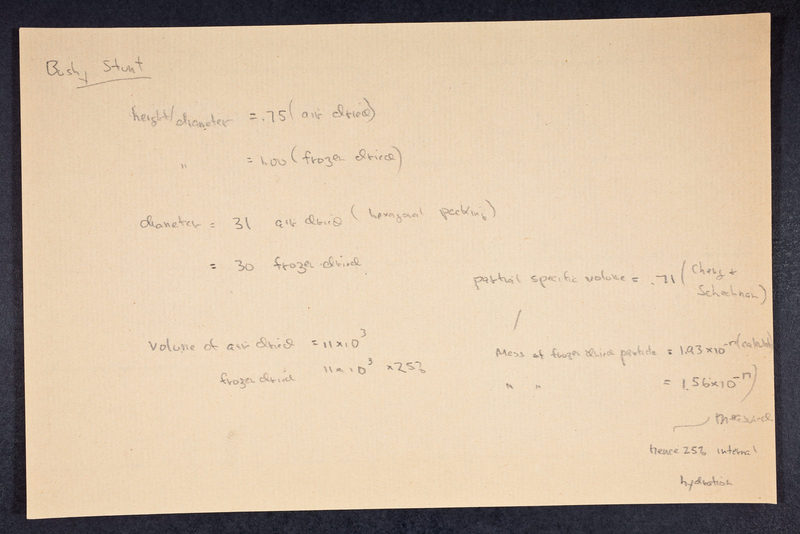 Bushy Stunt
height/diameter = .75 (air dried)
" = 1.00 (frozen dried)
diameter = 31 air dried (hexagonal packing)
= 30 frozen dried
partial specific volume = .71 (Cheng +
Schachman)
/
Volume of air dried = 11 x 10³
frozen dried 11 x 10³ x 25%
Mass of frozen dried particle = 1.93 x 10⁻¹⁷ (calculated
" " = 1.56 x 10⁻¹⁷)
measured
hence 25% internal
hydration